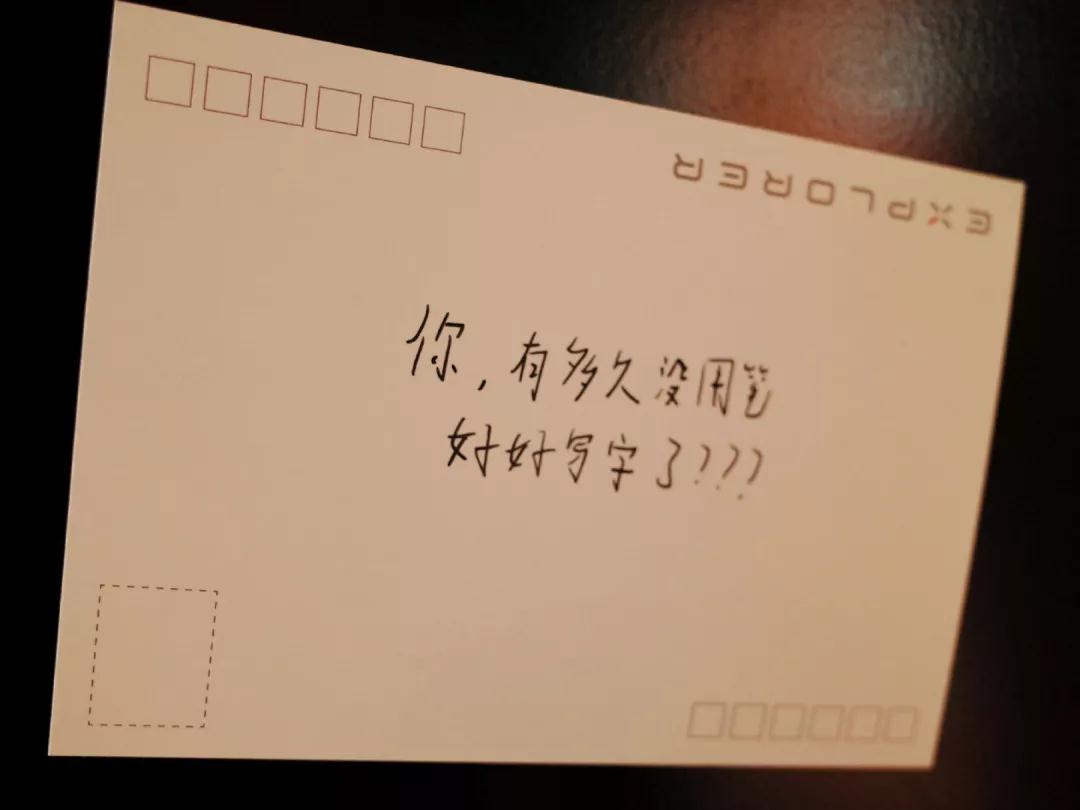 EXPLORER
你，有多久没用笔
好好写字了???